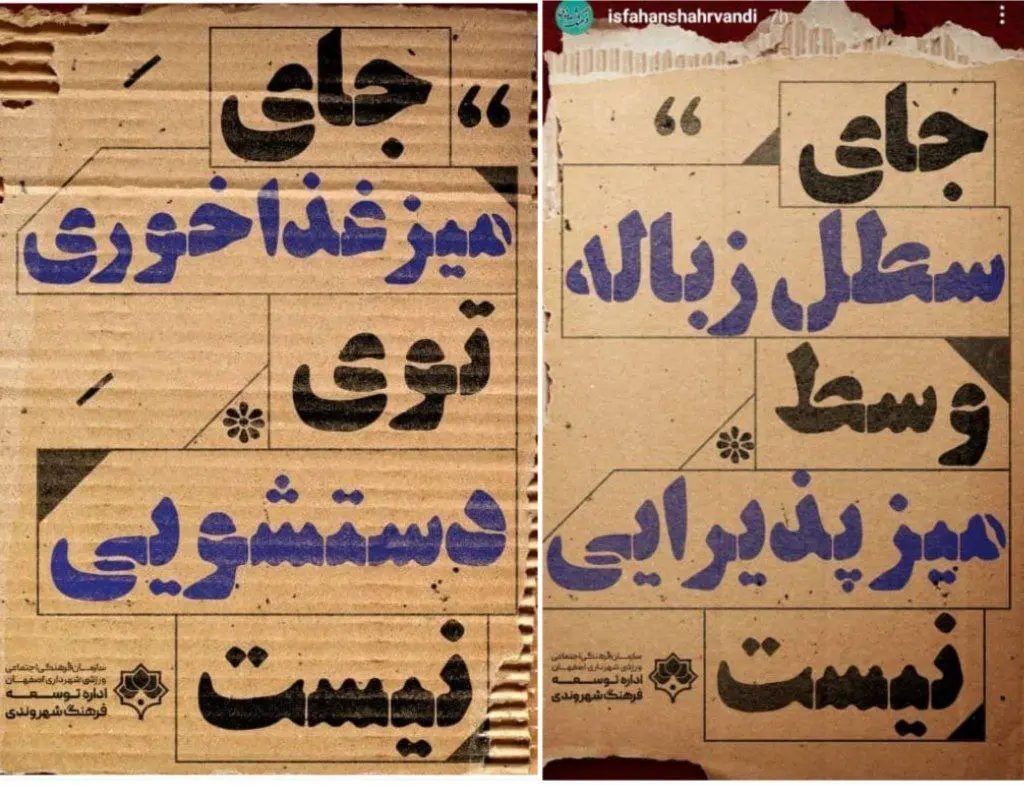 isfahanshahrvandi 7h
جای
سطل زباله
وسط
میز پذیرایی
نیست
سازمان فرهنگی اجتماعی
ورزشی شهرداری اصفهان
اداره توسعه
فرهنگ شهروندی
جای
میز غذاخوری
توی
دستشویی
نیست
سازمان فرهنگی اجتماعی
ورزشی شهرداری اصفهان
اداره توسعه
فرهنگ شهروندی